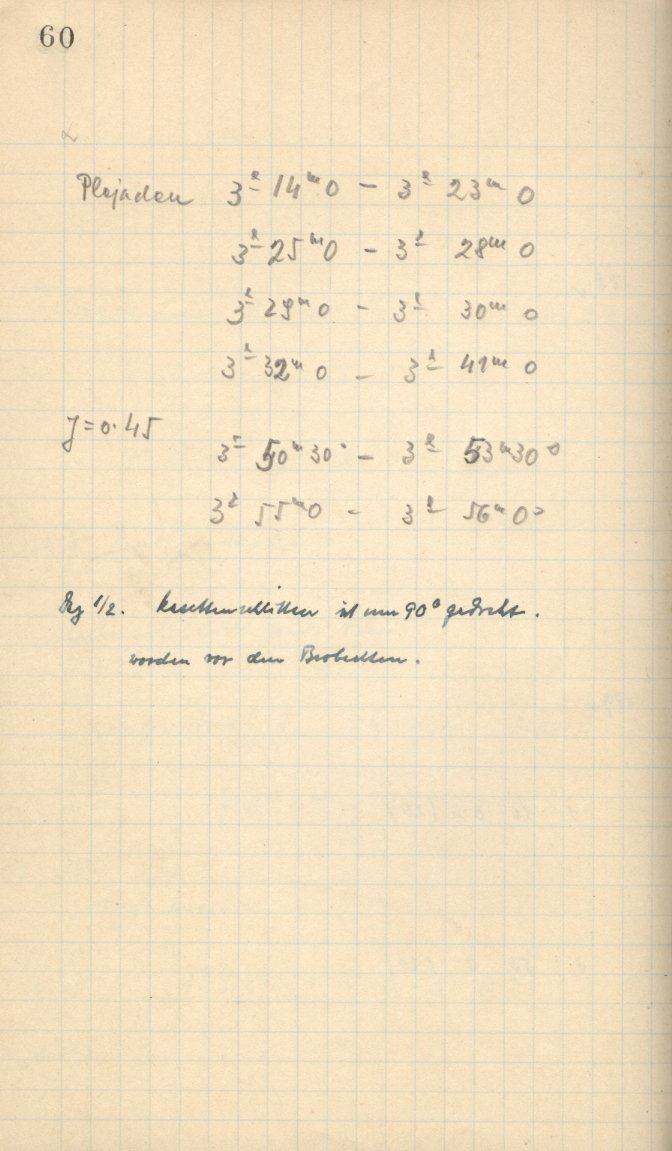 60
Plejaden 3ʰ 14ᵐ 0 – 3ʰ 23ᵐ 0
3ʰ 25ᵐ 0 – 3ʰ 28ᵐ 0
3ʰ 29ᵐ 0 – 3ʰ 30ᵐ 0
3ʰ 32ᵐ 0 – 3ʰ 41ᵐ 0
J = 0.45
3ʰ 50ᵐ 30ˢ – 3ʰ 53ᵐ 30ˢ
3ʰ 55ᵐ 0 – 3ʰ 56ᵐ 0ˢ
1/2. ist um 90° gedreht.
worden vor dem Beobachten.